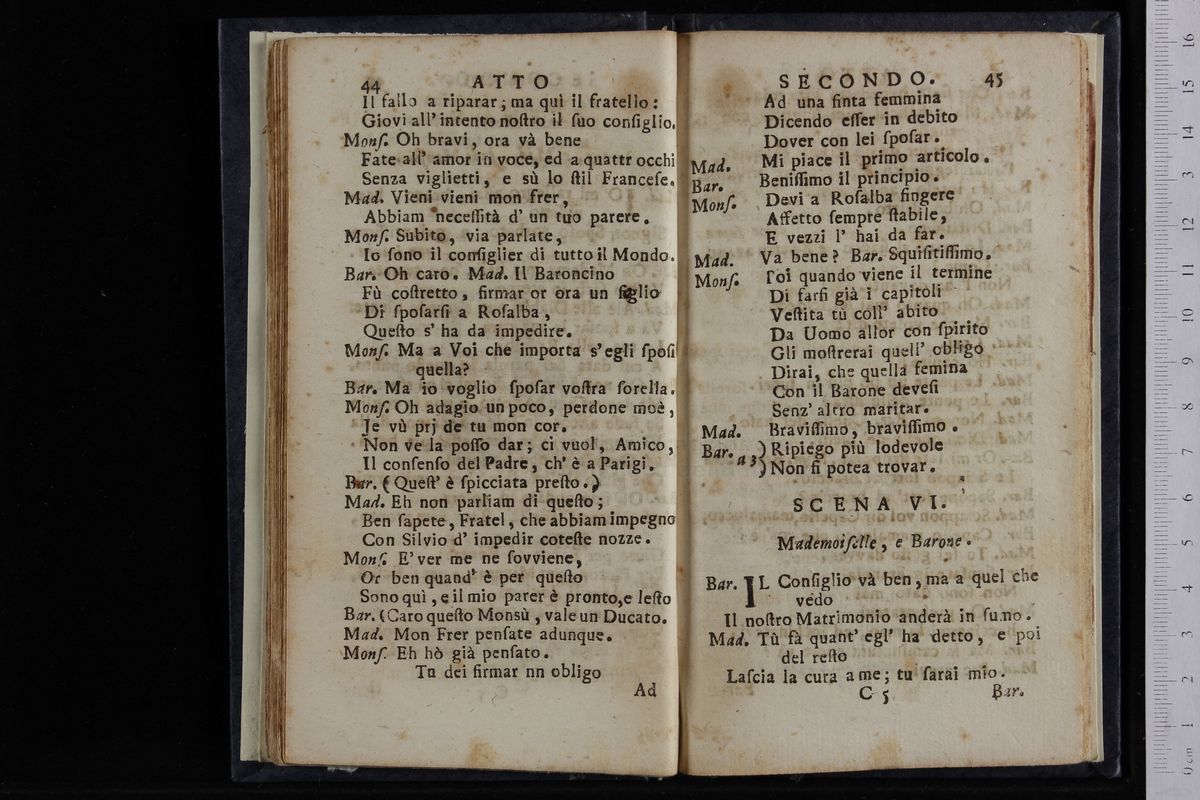 44 ATTO
Il fallo a riparar; ma quì il fratello:
Giovi all' intento noſtro il ſuo conſiglio.
Monſ. Oh bravi, ora và bene
Fate all' amor in voce, ed a quattr occhi
Senza viglietti, e sù lo ſtil Franceſe.
Mad. Vieni vieni mon frer,
Abbiam neceſſità d' un tuo parere.
Monſ. Subito, via parlate,
Io ſono il conſiglier di tutto il Mondo.
Bar. Oh caro. Mad. Il Baroncino
Fù coſtretto, firmar or ora un foglio
Di ſpoſarſi a Roſalba,
Queſto s' ha da impedire.
Monſ. Ma a Voi che importa s' egli ſpoſi
quella?
Bar. Ma io voglio ſpoſar voſtra ſorella.
Monſ. Oh adagio un poco, perdone moè,
Je vù prj de tu mon cor.
Non ve la poſſo dar; ci vuol, Amico,
Il conſenſo del Padre, ch' è a Parigi.
Bar. (Queſt' è ſpicciata preſto.)
Mad. Eh non parliam di queſto;
Ben ſapete, Fratel, che abbiam impegno
Con Silvio d' impedir coteſte nozze.
Monſ. E' ver me ne ſovviene,
Or ben quand' è per queſto
Sono quì, e il mio parer è pronto, e leſto
Bar. (Caro queſto Monsù, vale un Ducato.
Mad. Mon Frer penſate adunque.
Monſ. Eh hò già penſato.
Tu dei firmar nn obligo
Ad
SECONDO. 45
Ad una finta femmina
Dicendo eſſer in debito
Dover con lei ſpoſar.
Mad. Mi piace il primo articolo.
Bar. Beniſſimo il principio.
Monſ. Devi a Roſalba fingere
Affetto ſempre ſtabile,
E vezzi l' hai da far.
Mad. Va bene? Bar. Squiſitiſſimo.
Monſ. Poi quando viene il termine
Di farſi già i capitoli
Veſtita tù coll' abito
Da Uomo allor con ſpirito
Gli moſtrerai quell' obligo
Dirai, che quella femina
Con il Barone deveſi
Senz' altro maritar.
Mad. Braviſſimo, braviſſimo.
Bar. a 3 ) Ripiego più lodevole
) Non ſi potea trovar.
SCENA VI.
Mademoiſelle, e Barone.
Bar. IL Conſiglio và ben, ma a quel che
vedo
Il noſtro Matrimonio anderà in fu.no.
Mad. Tù fà quant' egl' ha detto, e poi
del reſto
Laſcia la cura a me; tu ſarai mio.
C 5 Bar.